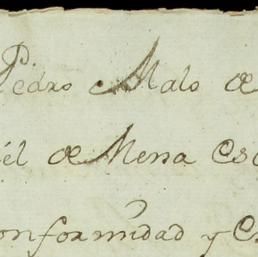 Pedro Malo de
el de Mena Es
onformidad y